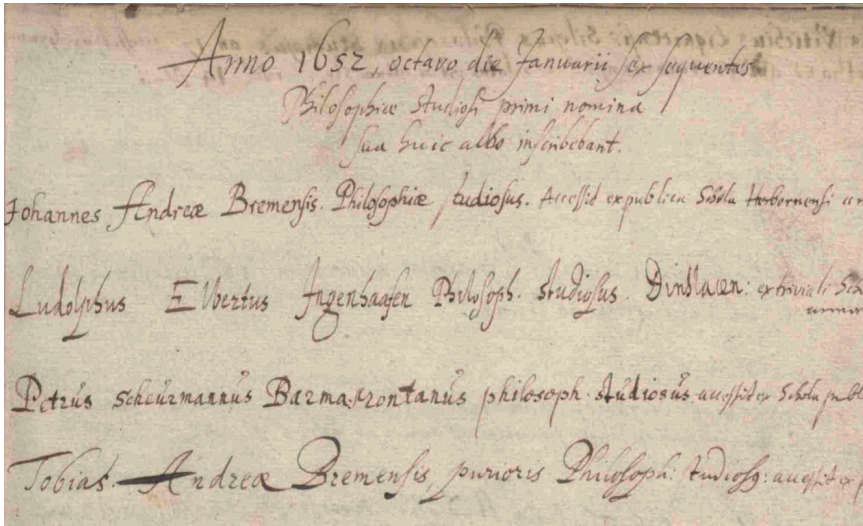 Anno 1652, octavo die Januarii sex sequentes
Philosophiæ studiosi primi nomina
sua huic albo inscribebant.
Johannes Andreæ Bremensis. Philosophiæ studiosus. Accessit ex publica Schola Herbornensi
Ludolphus Elbertus Ingenhaafen Philosoph. studiosus. Dinslacen: ex triviali
Petrus Scheurmannus Barma-prontanus philosoph. studiosus accessit ex Schola publ
Tobias Andreæ Bremensis, purioris Philosoph: studiosq: accessit ex